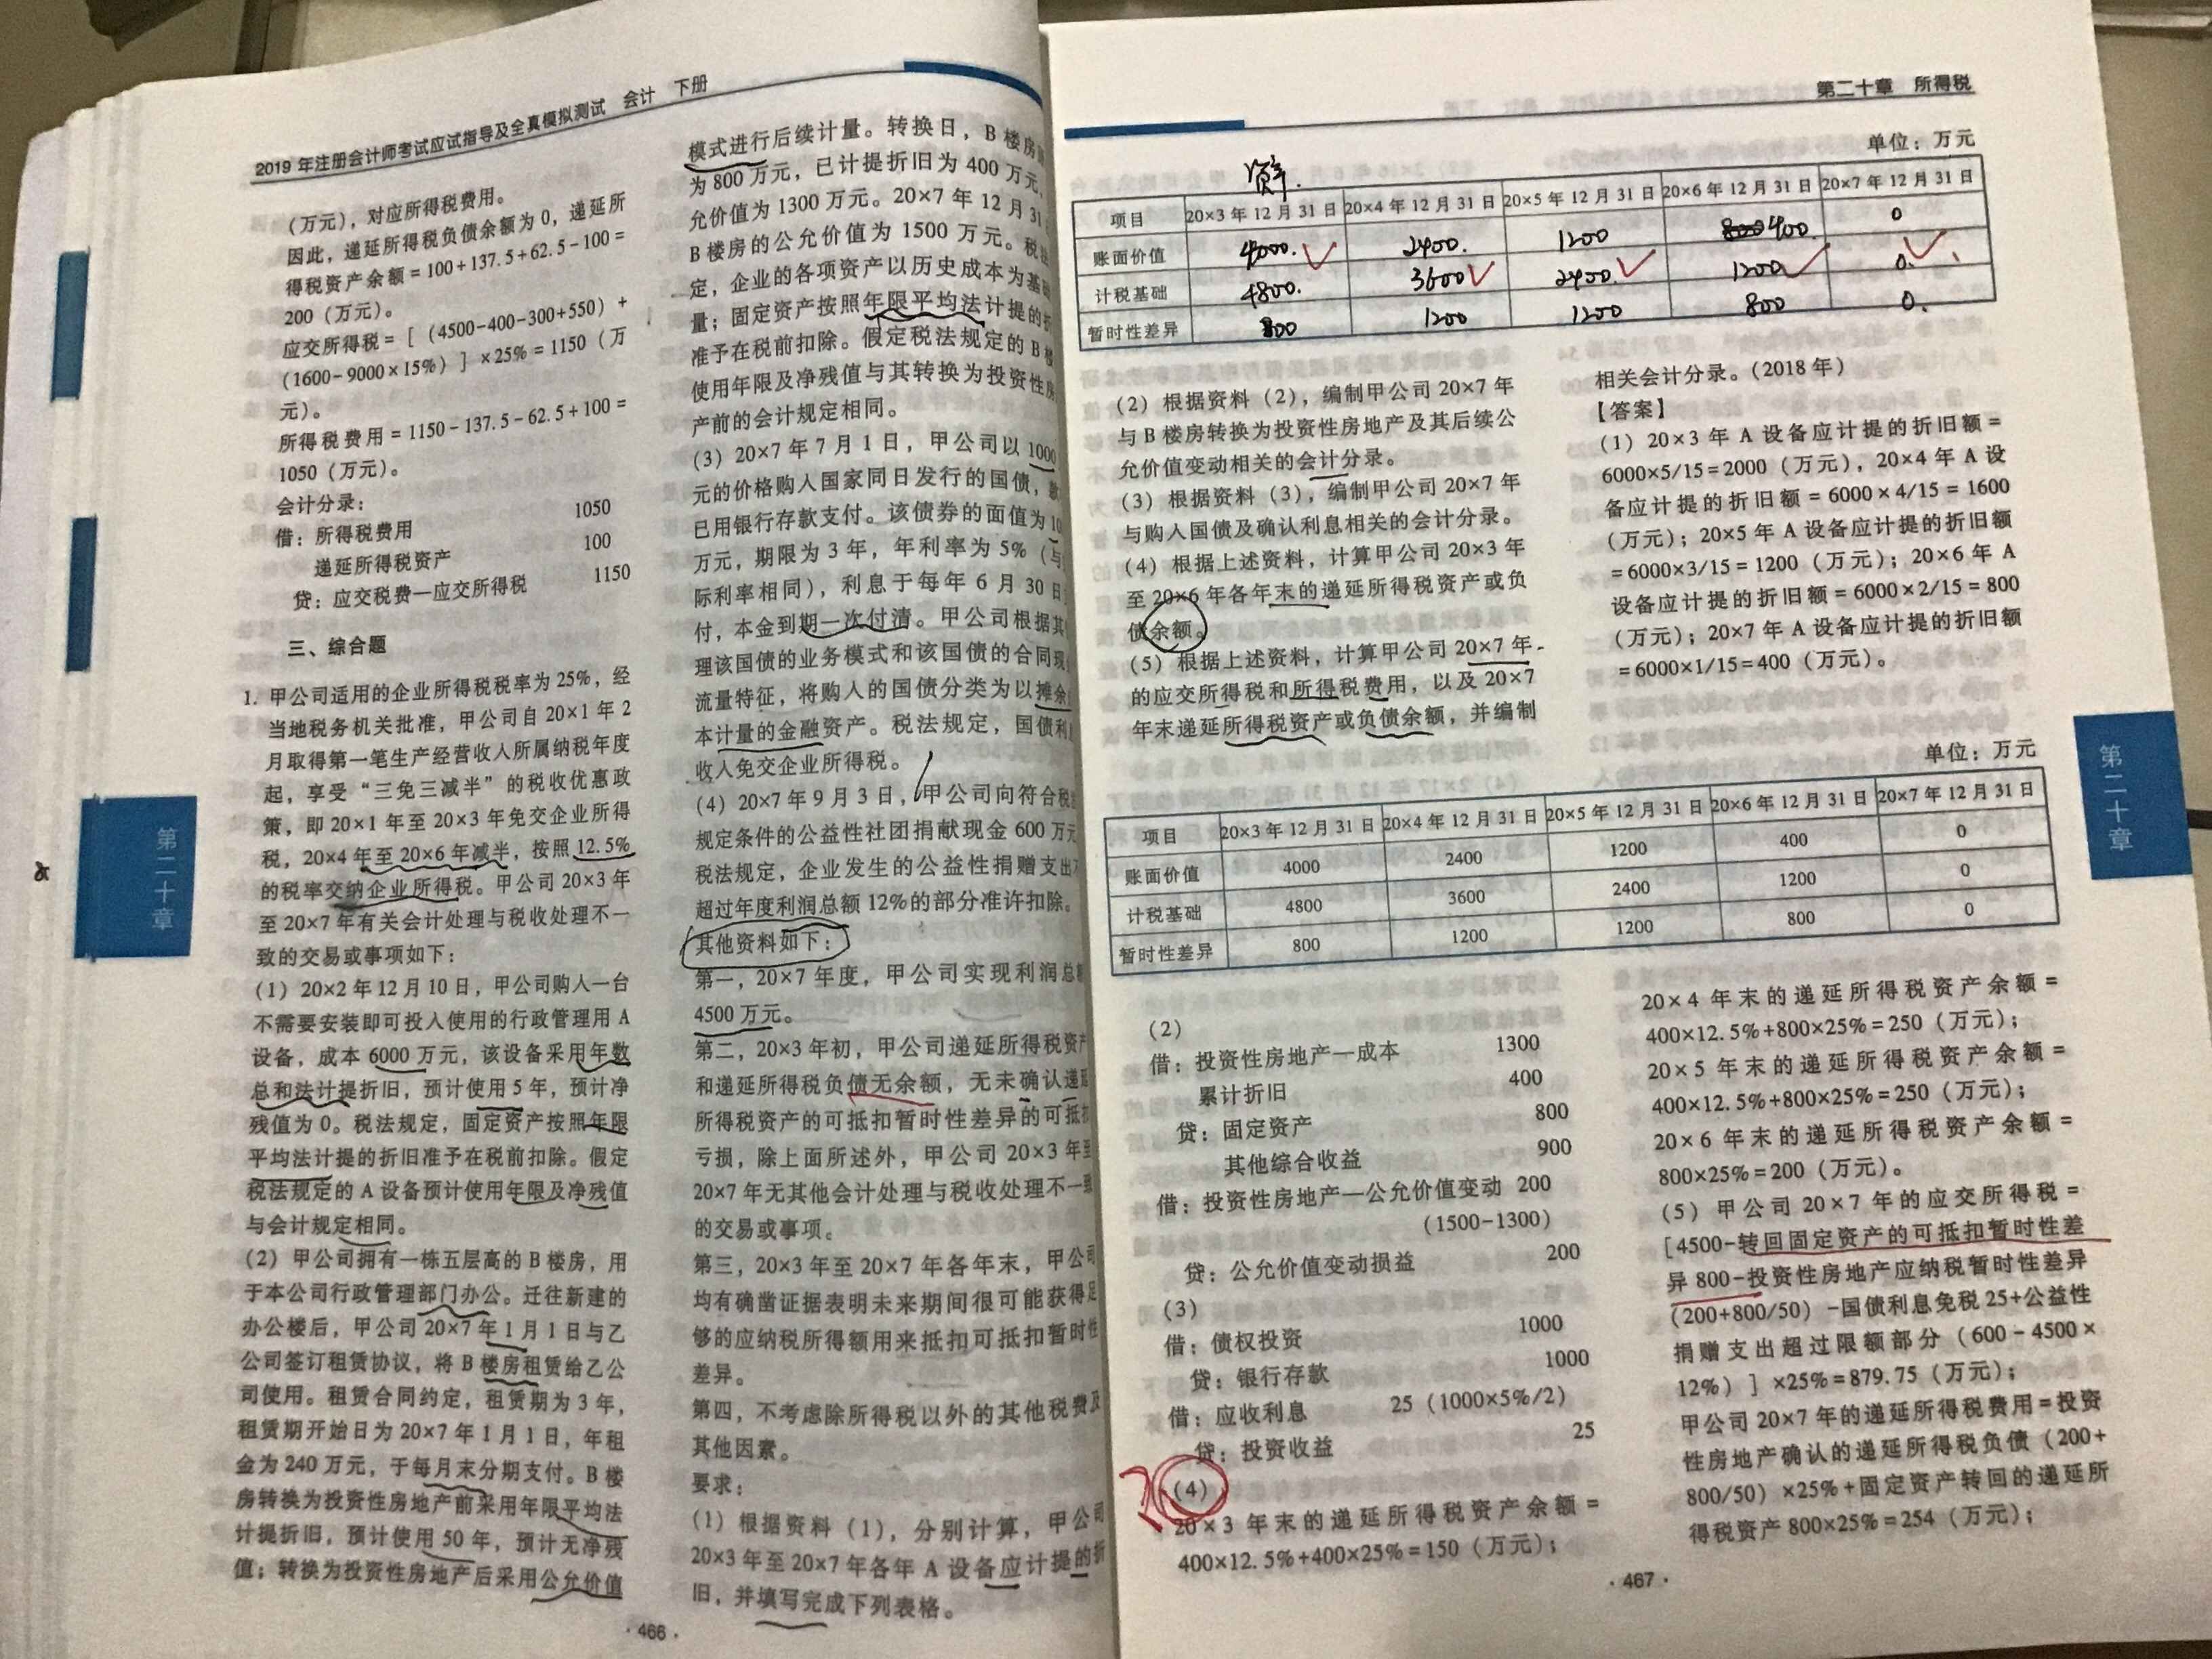 2019 年注册会计师考试应试指导及全真模拟测试 会计 下册
(万元)，对应所得税费用。
因此，递延所得税负债余额为 0，递延所
得税资产余额 = 100+137.5+62.5-100 =
200（万元）。
应交所得税 = [（4500-400-300+550）+
（1600-9000×15%）] ×25% = 1150（万
元）。
所得税费用 = 1150-137.5-62.5+100 =
1050（万元）。
会计分录：
借：所得税费用 1050
递延所得税资产 100
贷：应交税费—应交所得税 1150
三、综合题
1. 甲公司适用的企业所得税税率为 25%，经
当地税务机关批准，甲公司自 20×1 年 2
月取得第一笔生产经营收入所属纳税年度
起，享受“三免三减半”的税收优惠政
策，即 20×1 年至 20×3 年免交企业所得
税，20×4 年至 20×6 年减半，按照 12.5%
的税率交纳企业所得税。甲公司 20×3 年
至 20×7 年有关会计处理与税收处理不一
致的交易或事项如下：
（1）20×2 年 12 月 10 日，甲公司购入一台
不需要安装即可投入使用的行政管理用 A
设备，成本 6000 万元，该设备采用年数
总和法计提折旧，预计使用 5 年，预计净
残值为 0。税法规定，固定资产按照年限
平均法计提的折旧准予在税前扣除。假定
税法规定的 A 设备预计使用年限及净残值
与会计规定相同。
（2）甲公司拥有一栋五层高的 B 楼房，用
于本公司行政管理部门办公。迁往新建的
办公楼后，甲公司 20×7 年 1 月 1 日与乙
公司签订租赁协议，将 B 楼房租赁给乙公
司使用。租赁合同约定，租赁期为 3 年，
租赁期开始日为 20×7 年 1 月 1 日，年租
金为 240 万元，于每月末分期支付。B 楼
房转换为投资性房地产前采用年限平均法
计提折旧，预计使用 50 年，预计无净残
值；转换为投资性房地产后采用公允价值
模式进行后续计量。转换日，B 楼房
为 800 万元，已计提折旧为 400 万元，
允价值为 1300 万元。20×7 年 12 月 31
B 楼房的公允价值为 1500 万元。税
定，企业的各项资产以历史成本为基
量；固定资产按照年限平均法计提的折
准予在税前扣除。假定税法规定的 B 楼
使用年限及净残值与其转换为投资性房
产前的会计规定相同。
（3）20×7 年 7 月 1 日，甲公司以 1000
元的价格购入国家同日发行的国债，
已用银行存款支付。该债券的面值为 10
万元，期限为 3 年，年利率为 5%（与
际利率相同），利息于每年 6 月 30 日
付，本金到期一次付清。甲公司根据其
理该国债的业务模式和该国债的合同现
流量特征，将购入的国债分类为以摊余
本计量的金融资产。税法规定，国债利
收入免交企业所得税。
（4）20×7 年 9 月 3 日，甲公司向符合税
规定条件的公益性社团捐献现金 600 万元
税法规定，企业发生的公益性捐赠支出
超过年度利润总额 12%的部分准许扣除。
其他资料如下：
第一，20×7 年度，甲公司实现利润总
4500 万元。
第二，20×3 年初，甲公司递延所得税资产
和递延所得税负债无余额，无未确认递延
所得税资产的可抵扣暂时性差异的可抵扣
亏损，除上面所述外，甲公司 20×3 年至
20×7 年无其他会计处理与税收处理不一致
的交易或事项。
第三，20×3 年至 20×7 年各年末，甲公司
均有确凿证据表明未来期间很可能获得足
够的应纳税所得额用来抵扣可抵扣暂时性
差异。
第四，不考虑除所得税以外的其他税费及
其他因素。
要求：
（1）根据资料（1），分别计算，甲公司
20×3 年至 20×7 年各年 A 设备应计提的折
旧，并填写完成下列表格。
· 466 ·
第二十章
第二十章 所得税
单位：万元
项目 20×3 年 12 月 31 日 20×4 年 12 月 31 日 20×5 年 12 月 31 日 20×6 年 12 月 31 日 20×7 年 12 月 31 日
账面价值 4000. 2400. 1200 800 400 0
计税基础 4800. 3600 2400. 1200 0.
暂时性差异 800 1200 1200 800 0.
（2）根据资料（2），编制甲公司 20×7 年
与 B 楼房转换为投资性房地产及其后续公
允价值变动相关的会计分录。
（3）根据资料（3），编制甲公司 20×7 年
与购入国债及确认利息相关的会计分录。
（4）根据上述资料，计算甲公司 20×3 年
至 20×6 年各年末的递延所得税资产或负
债余额。
（5）根据上述资料，计算甲公司 20×7 年
的应交所得税和所得税费用，以及 20×7
年末递延所得税资产或负债余额，并编制
相关会计分录。（2018 年）
【答案】
（1）20×3 年 A 设备应计提的折旧额 =
6000×5/15 = 2000（万元），20×4 年 A 设
备应计提的折旧额 = 6000×4/15 = 1600
（万元）；20×5 年 A 设备应计提的折旧额
= 6000×3/15 = 1200（万元）；20×6 年 A
设备应计提的折旧额 = 6000×2/15 = 800
（万元）；20×7 年 A 设备应计提的折旧额
= 6000×1/15 = 400（万元）。
单位：万元
项目 20×3 年 12 月 31 日 20×4 年 12 月 31 日 20×5 年 12 月 31 日 20×6 年 12 月 31 日 20×7 年 12 月 31 日
账面价值 4000 2400 1200 400 0
计税基础 4800 3600 2400 1200 0
暂时性差异 800 1200 1200 800 0
（2）
借：投资性房地产—成本 1300
累计折旧 400
贷：固定资产 800
其他综合收益 900
借：投资性房地产—公允价值变动 200
（1500-1300）
贷：公允价值变动损益 200
（3）
借：债权投资 1000
贷：银行存款 1000
借：应收利息 25（1000×5%/2）
贷：投资收益 25
（4）
20×3 年末的递延所得税资产余额 =
400×12.5%+400×25% = 150（万元）；
20×4 年末的递延所得税资产余额 =
400×12.5%+800×25% = 250（万元）；
20×5 年末的递延所得税资产余额 =
400×12.5%+800×25% = 250（万元）；
20×6 年末的递延所得税资产余额 =
800×25% = 200（万元）。
（5）甲公司 20×7 年的应交所得税 =
[4500-转回固定资产的可抵扣暂时性差
异 800-投资性房地产应纳税暂时性差异
（200+800/50）-国债利息免税 25+公益性
捐赠支出超过限额部分（600-4500×
12%）] ×25% = 879.75（万元）；
甲公司 20×7 年的递延所得税费用 = 投资
性房地产确认的递延所得税负债（200+
800/50）×25%+固定资产转回的递延所
得税资产 800×25% = 254（万元）；
· 467 ·
第二十章